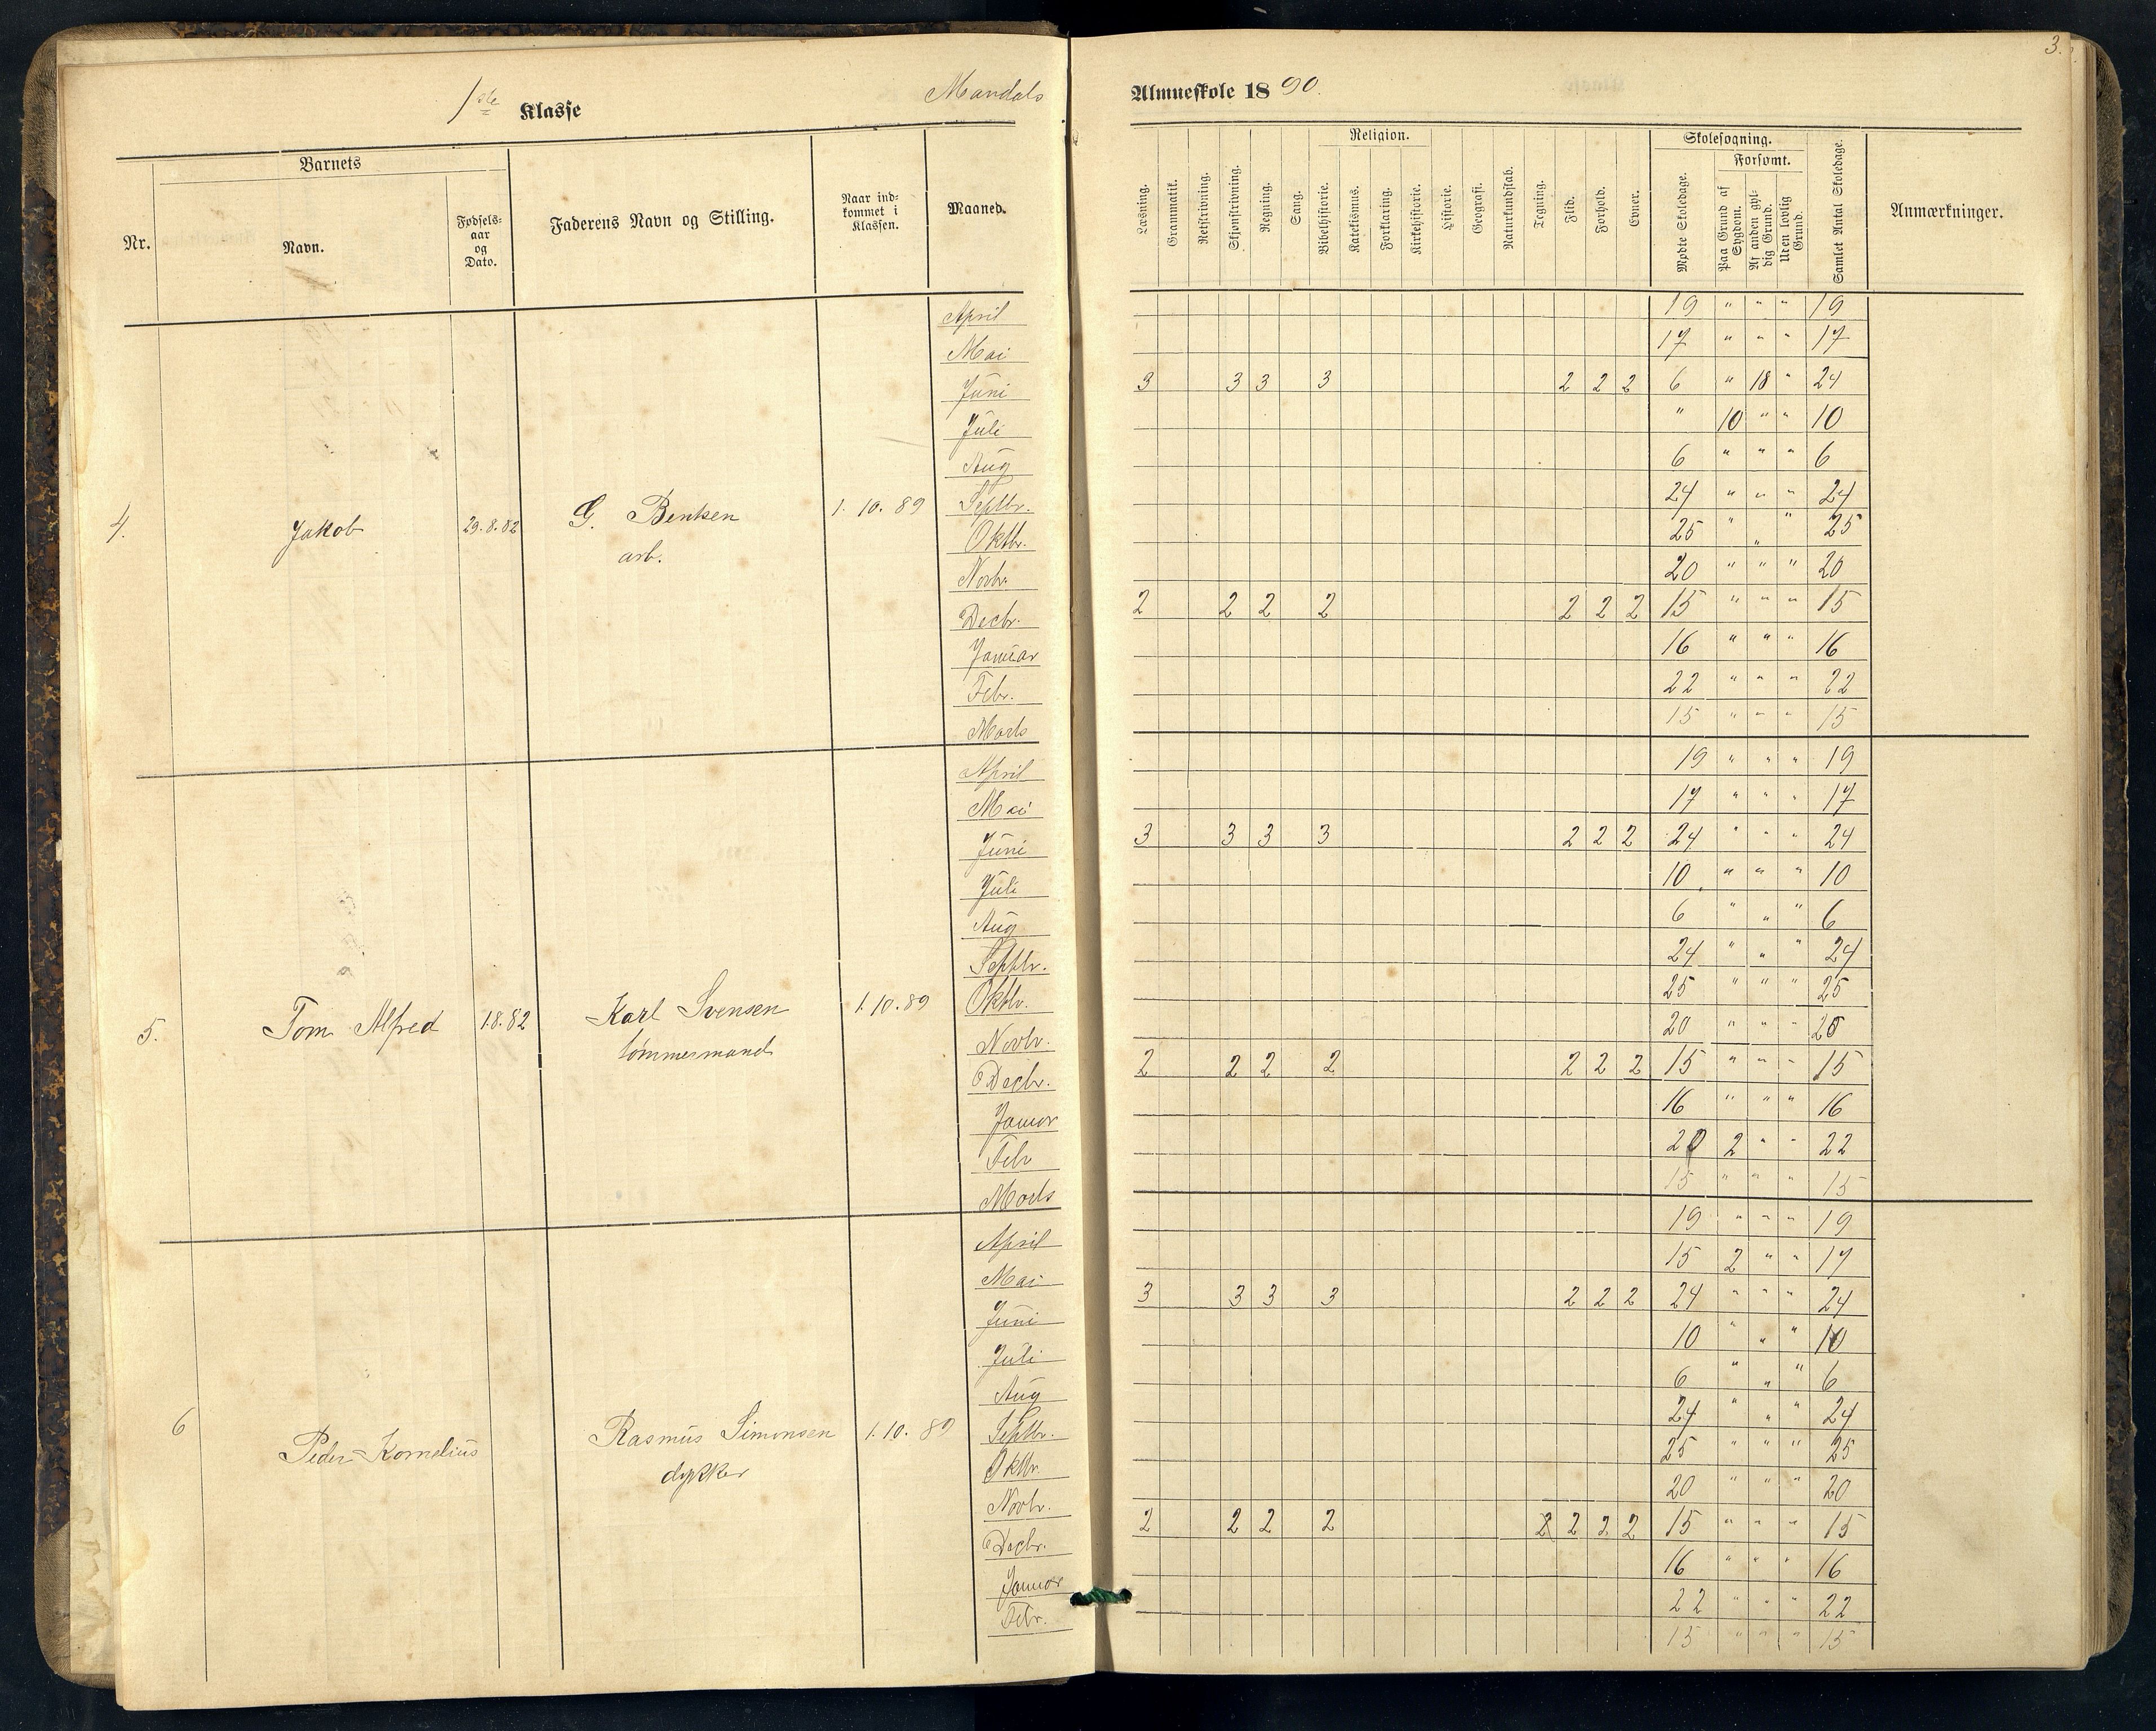 3.
1ste Klasse Mandals Almueskole 1890.
Nr. Barnets Navn. Fødsels-aar og Dato. Faderens Navn og Stilling. Naar ind-kommet i Klassen. Maaned. Læsning. Grammatik. Retskrivning. Skjønskrivning. Regning. Sang. Religion. Bibelhistorie. Katekismus. Forklaring. Kirkehistorie. Historie. Geografi. Naturkundskab. Tegning. Flid. Forhold. Evner. Skolesøgning. Mødte Skoledage. Forsømt. Paa Grund af Sygdom. Af anden gyl-dig Grund. Uden lovlig Grund. Samlet Antal Skoledage. Anmærkninger.
4. Jakob 29.8.82 G. Bentsen arb. 1.10.89
April 19 " " " 19
Mai 17 " " " 17
Juni 3 3 3 3 2 2 2 6 " 18 " 24
Juli " 10 " " 10
Aug 6 " " " 6
Septbr. 24 " " " 24
Oktbr. 25 " " " 25
Novbr. 20 " " " 20
Decbr. 2 2 2 2 2 2 2 15 " " " 15
Januar 16 " " " 16
Febr. 22 " " " 22
Marts 15 " " " 15
5. Tom Alfred 1.8.82 Karl Svensen tømmermand 1.10.89
April 19 " " " 19
Mai 17 " " " 17
Juni 3 3 3 3 2 2 2 24 " " " 24
Juli 10 " " " 10
Aug 6 " " " 6
Septbr. 24 " " " 24
Oktbr. 25 " " " 25
Novbr. 20 " " " 20
Decbr. 2 2 2 2 2 2 2 15 " " " 15
Januar 16 " " " 16
Febr 20 2 " " 22
Marts 15 " " " 15
6 Peder Kornelius Rasmus Simonsen dykker 1.10.89
April 19 " " " 19
Mai 15 2 " " 17
Juni 3 3 3 3 2 2 2 24 " " " 24
Juli 10 " " " 10
Aug 6 " " " 6
Septbr. 24 " " " 24
Oktbr. 25 " " " 25
Novbr. 20 " " " 20
Decbr. 2 2 2 2 2 2 2 2 15 " " " 15
Januar 16 " " " 16
Febr. 22 " " " 22
15 " " " 15